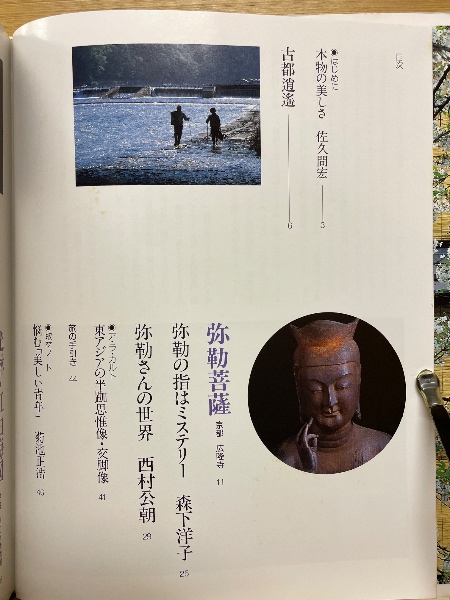 目次
◉はじめに
本物の美しさ 佐久間宏 3
古都逍遙 6
弥勒菩薩 京都 広隆寺 11
弥勒の指はミステリー 森下洋子 25
弥勒さんの世界 西村公朝 29
◉ア・ラ・カルト
東アジアの半跏思惟像・交脚像 41
旅の手引き 44
◉取材ノート
悩む“美しい青年”